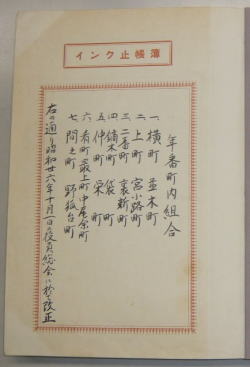 インク止帳簿
年番町内組合
一、横町 並木町
二、上町 宮小路町
三、二番町 裏新町
四、鏑木町 袋町
五、仲町 栄町
六、肴町 最上町 中尾余町
七、間之町 野狐台町
右の通り昭和廿六年十月一日役員総会に於て改正